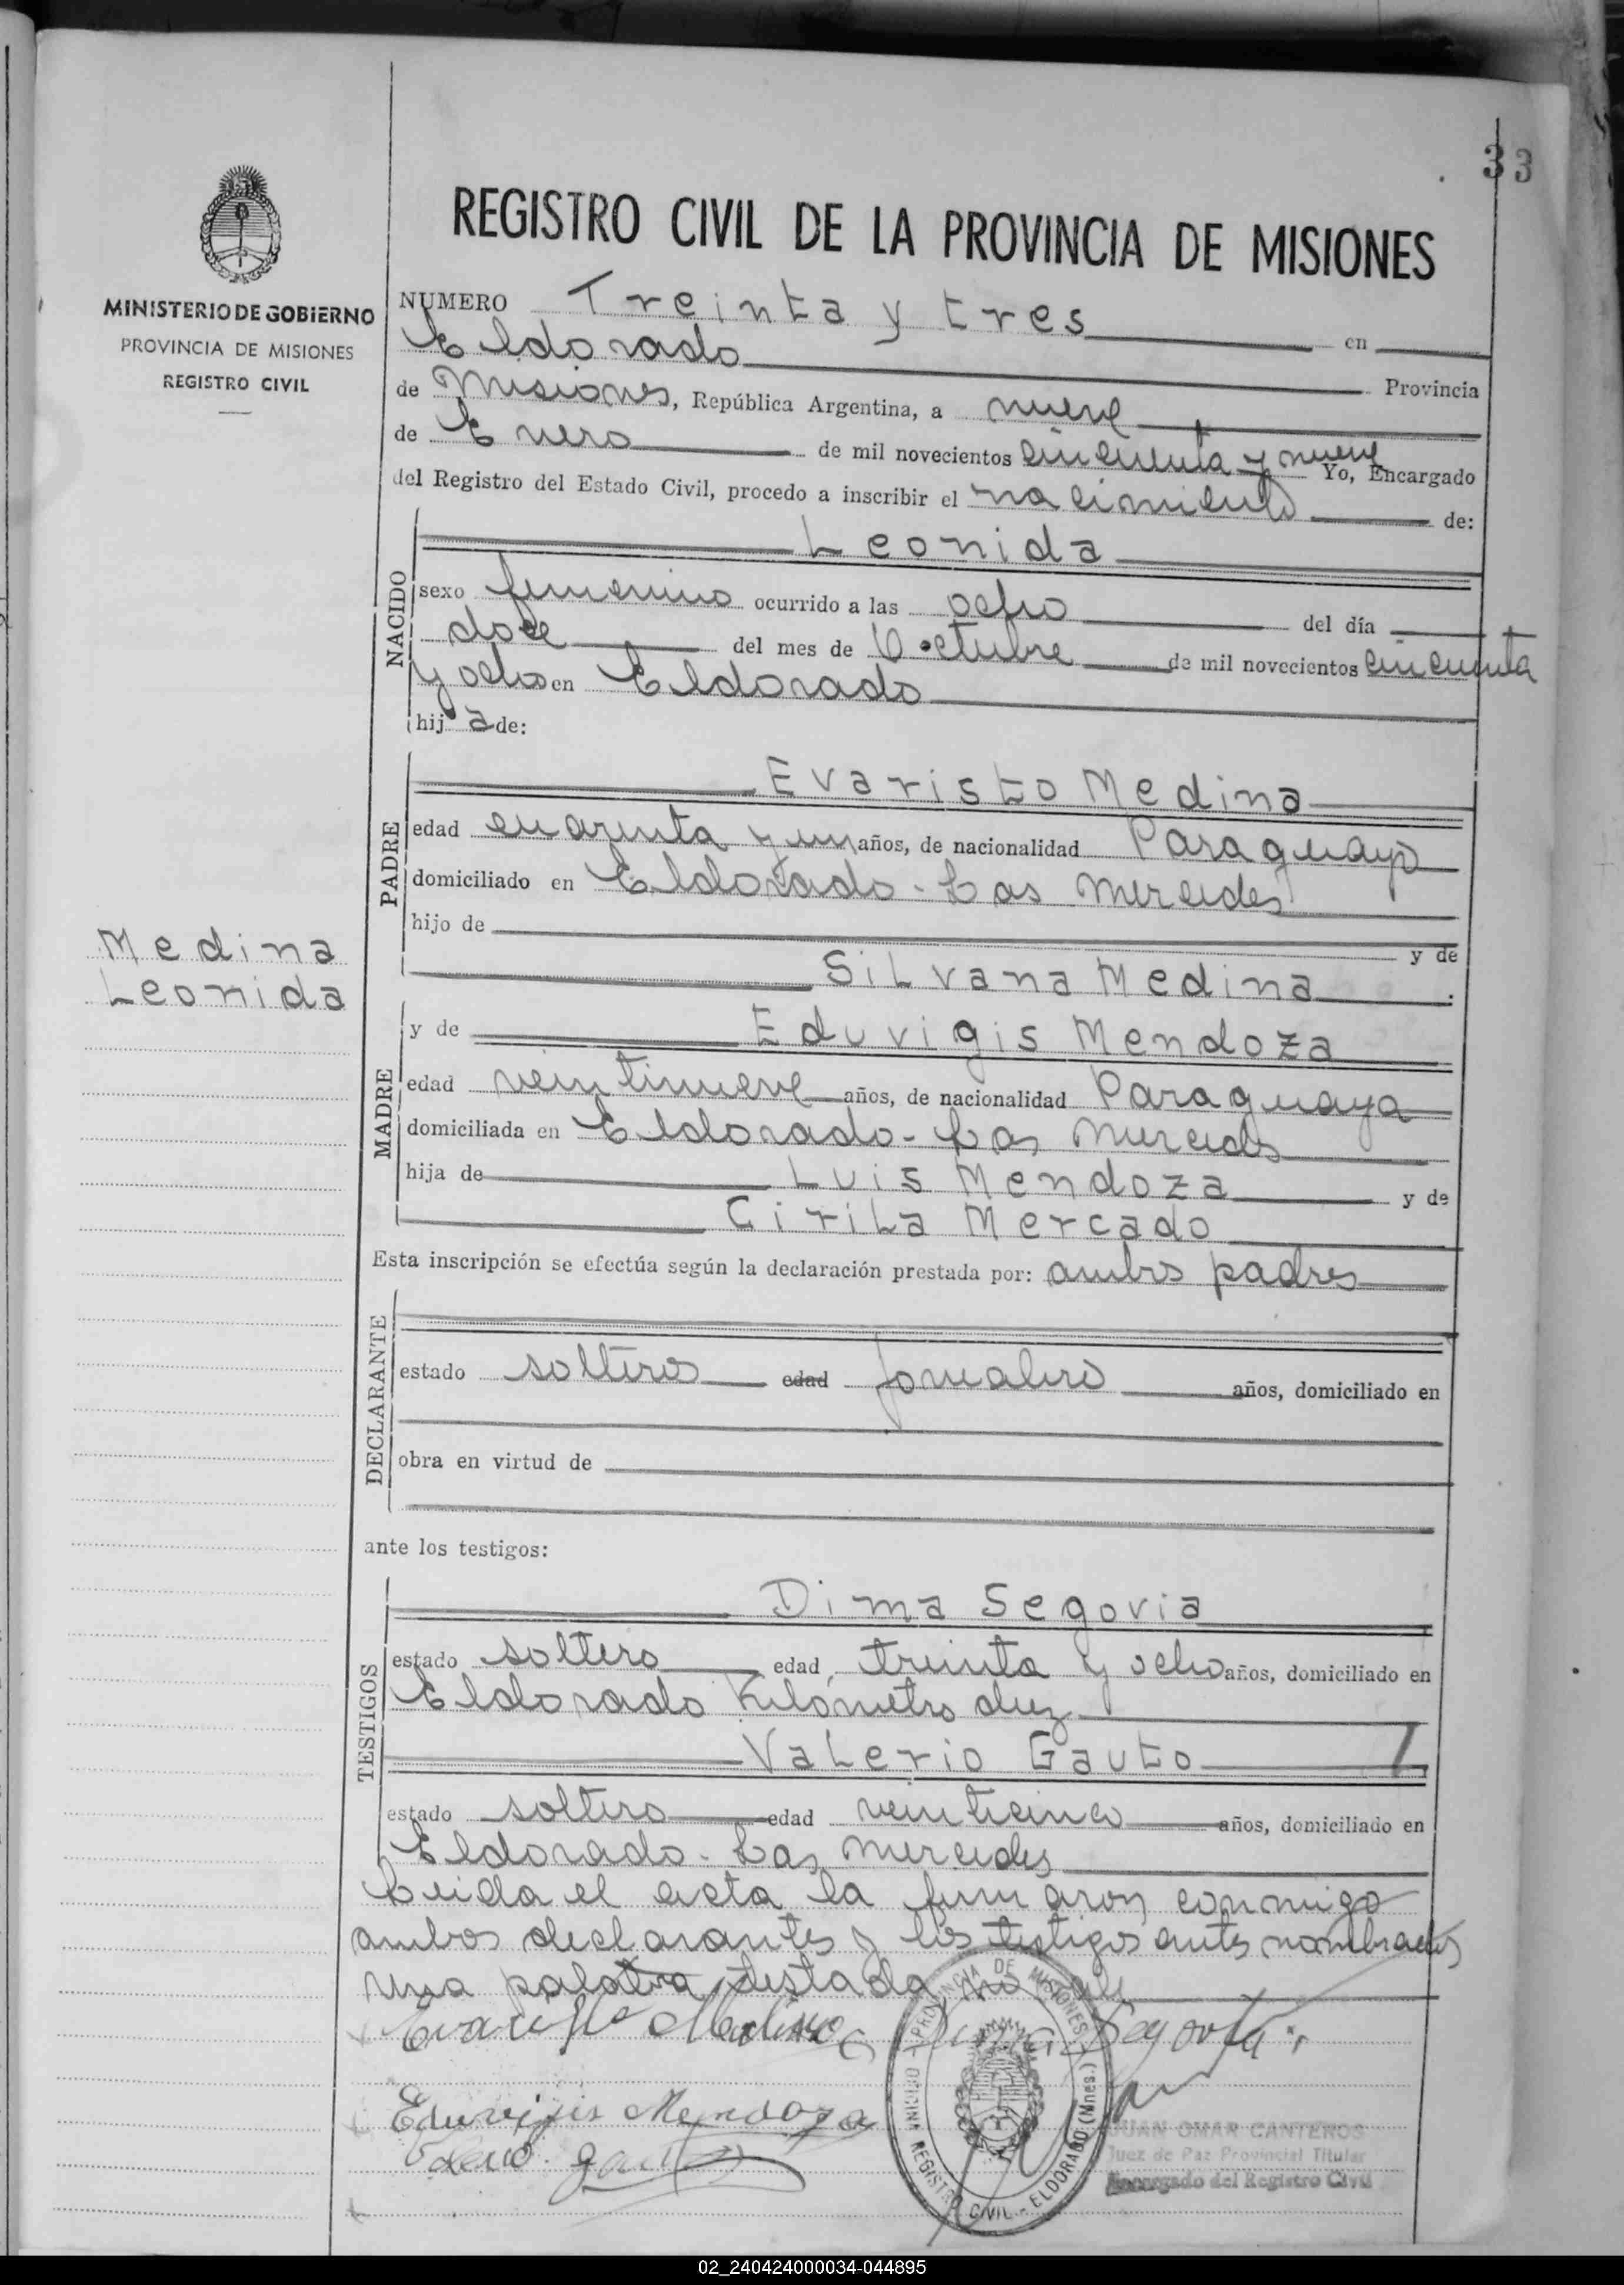 33
REGISTRO CIVIL DE LA PROVINCIA DE MISIONES
MINISTERIO DE GOBIERNO
PROVINCIA DE MISIONES
REGISTRO CIVIL
NUMERO Treinta y tres en
Eldorado Provincia
de Misiones, República Argentina, a nueve
de Enero de mil novecientos cincuenta y nueve Yo, Encargado
del Registro del Estado Civil, procedo a inscribir el nacimiento de:
NACIDO
Leonida
sexo femenino ocurrido a las ocho del día
doce del mes de Octubre de mil novecientos cincuenta
y ocho en Eldorado
hij a de:
PADRE
Evaristo Medina
edad cuarenta y un años, de nacionalidad Paraguayo
domiciliado en Eldorado - Las Mercedes
hijo de y de
Silvana Medina.
Medina
Leonida
MADRE
y de Eduvigis Mendoza
edad veintinueve años, de nacionalidad Paraguaya
domiciliada en Eldorado - Las Mercedes
hija de Luis Mendoza y de
Cirila Mercado
Esta inscripción se efectúa según la declaración prestada por: ambos padres
DECLARANTE
estado solteros edad jornalero años, domiciliado en
obra en virtud de
ante los testigos:
TESTIGOS
Dima Segovia
estado soltero edad treinta y ocho años, domiciliado en
Eldorado Kilómetro diez
Valerio Gauto
estado soltero edad veinticinco años, domiciliado en
Eldorado - Las Mercedes
Leida el acta la firmaron conmigo
ambos declarantes y los testigos antes nombrados
una palabra testada no vale
Evaristo Medina Dima Segovia
Eduvigis Mendoza
Valerio Gauto
PROVINCIA DE MISIONES
OFICINA REGISTRO CIVIL - ELDORADO (Mnes.)
JUAN OMAR CANTEROS
Juez de Paz Provincial Titular
Encargado del Registro Civil
02_240424000034-044895